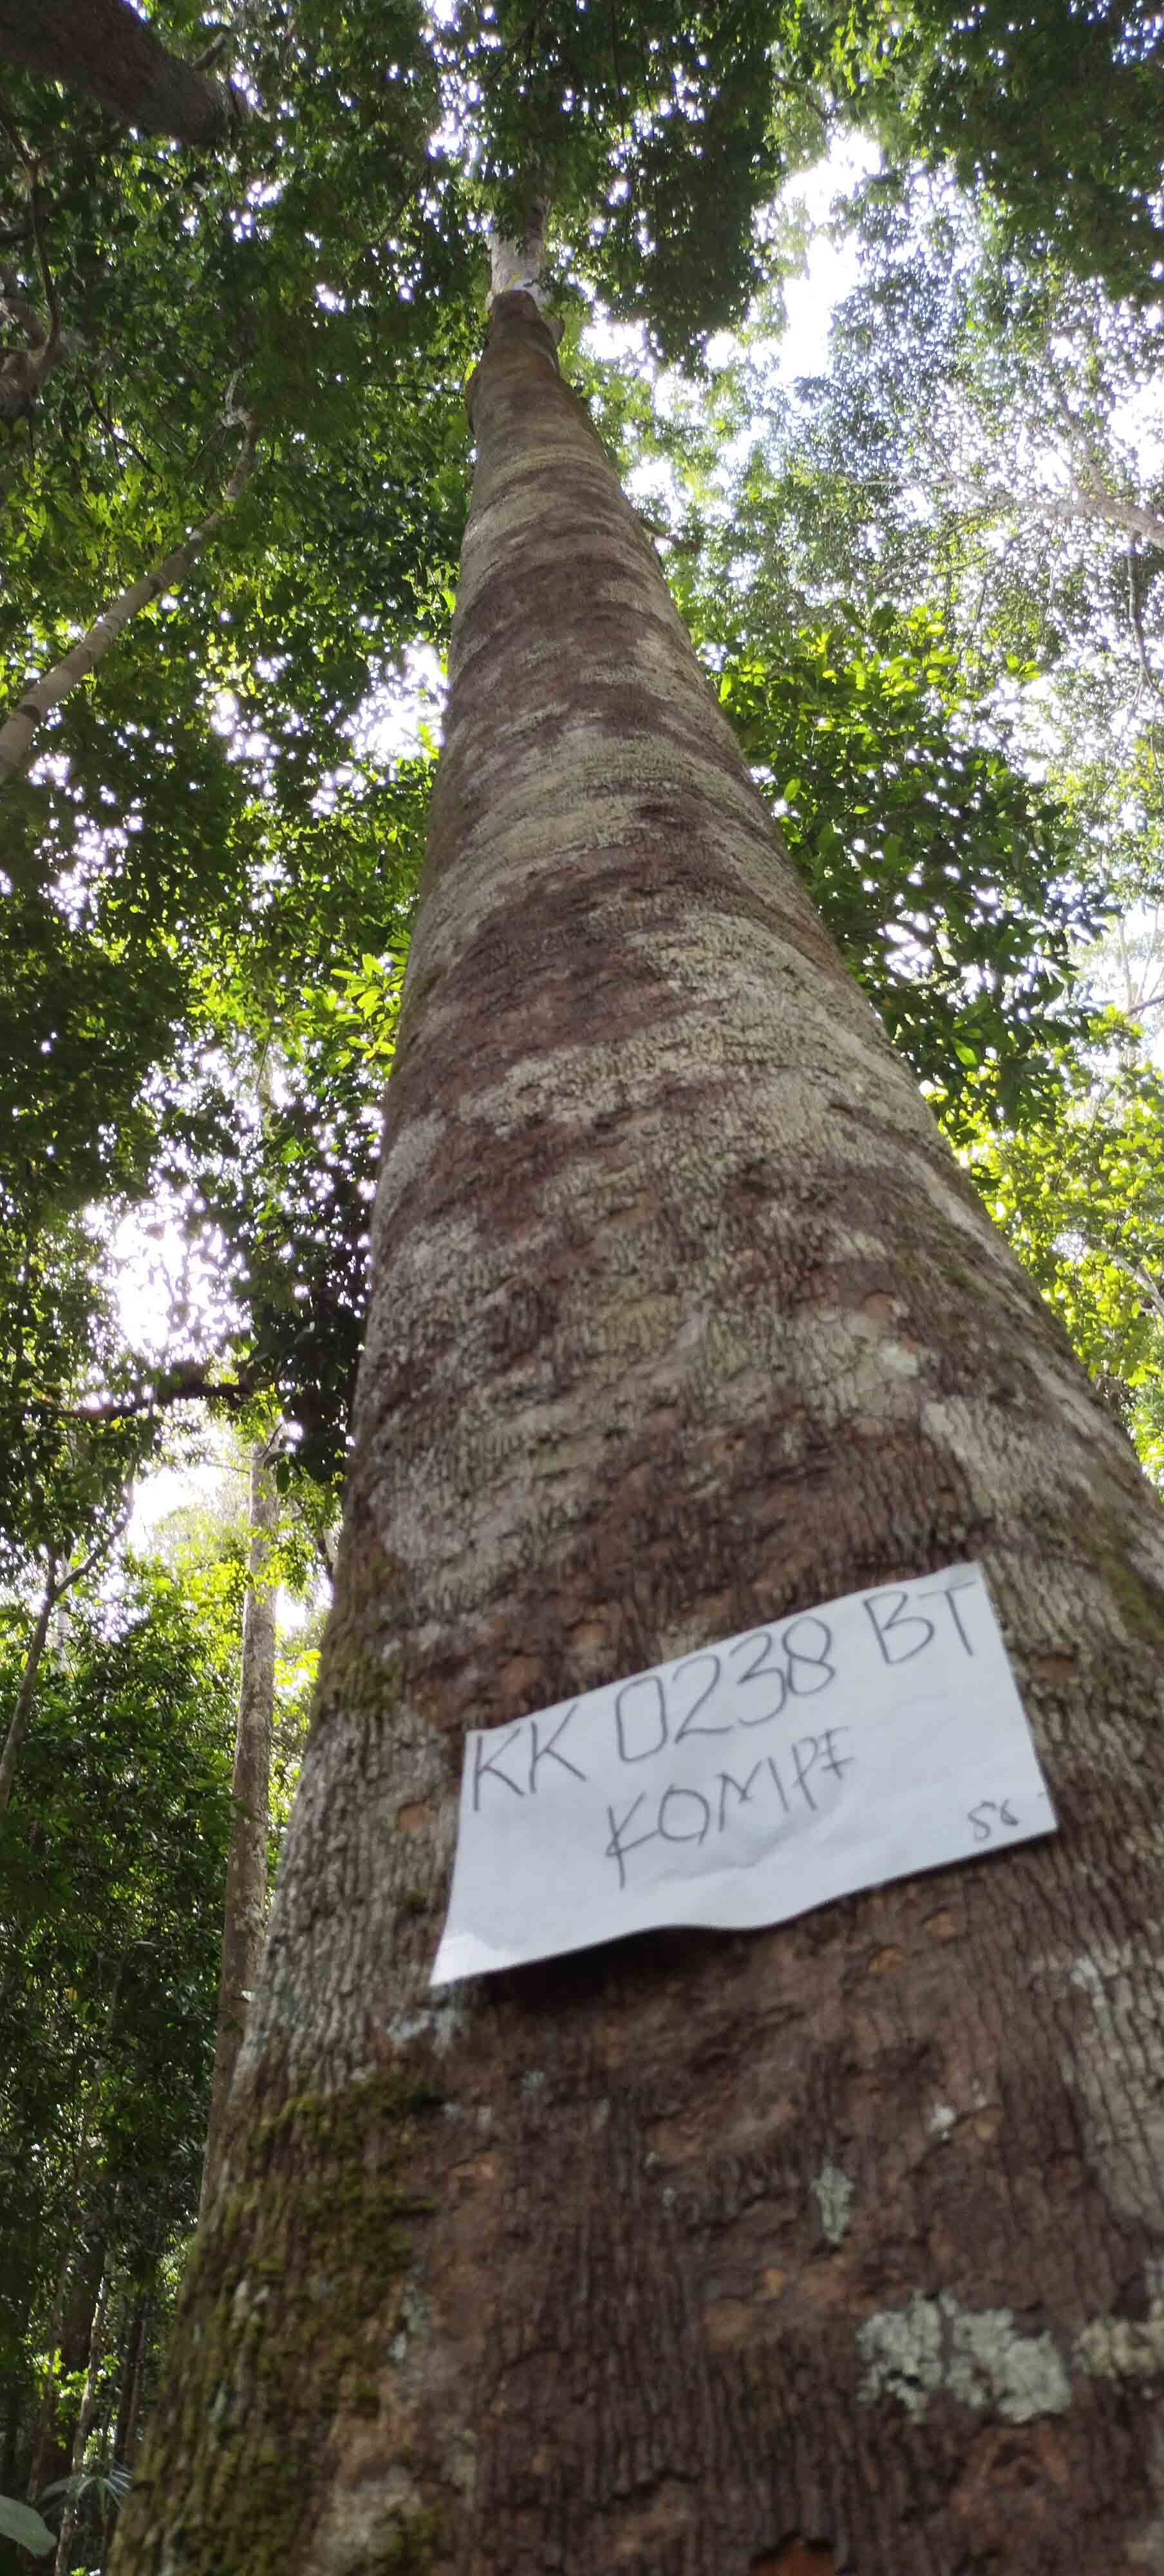 KK 0238 BT
KOMPE
56